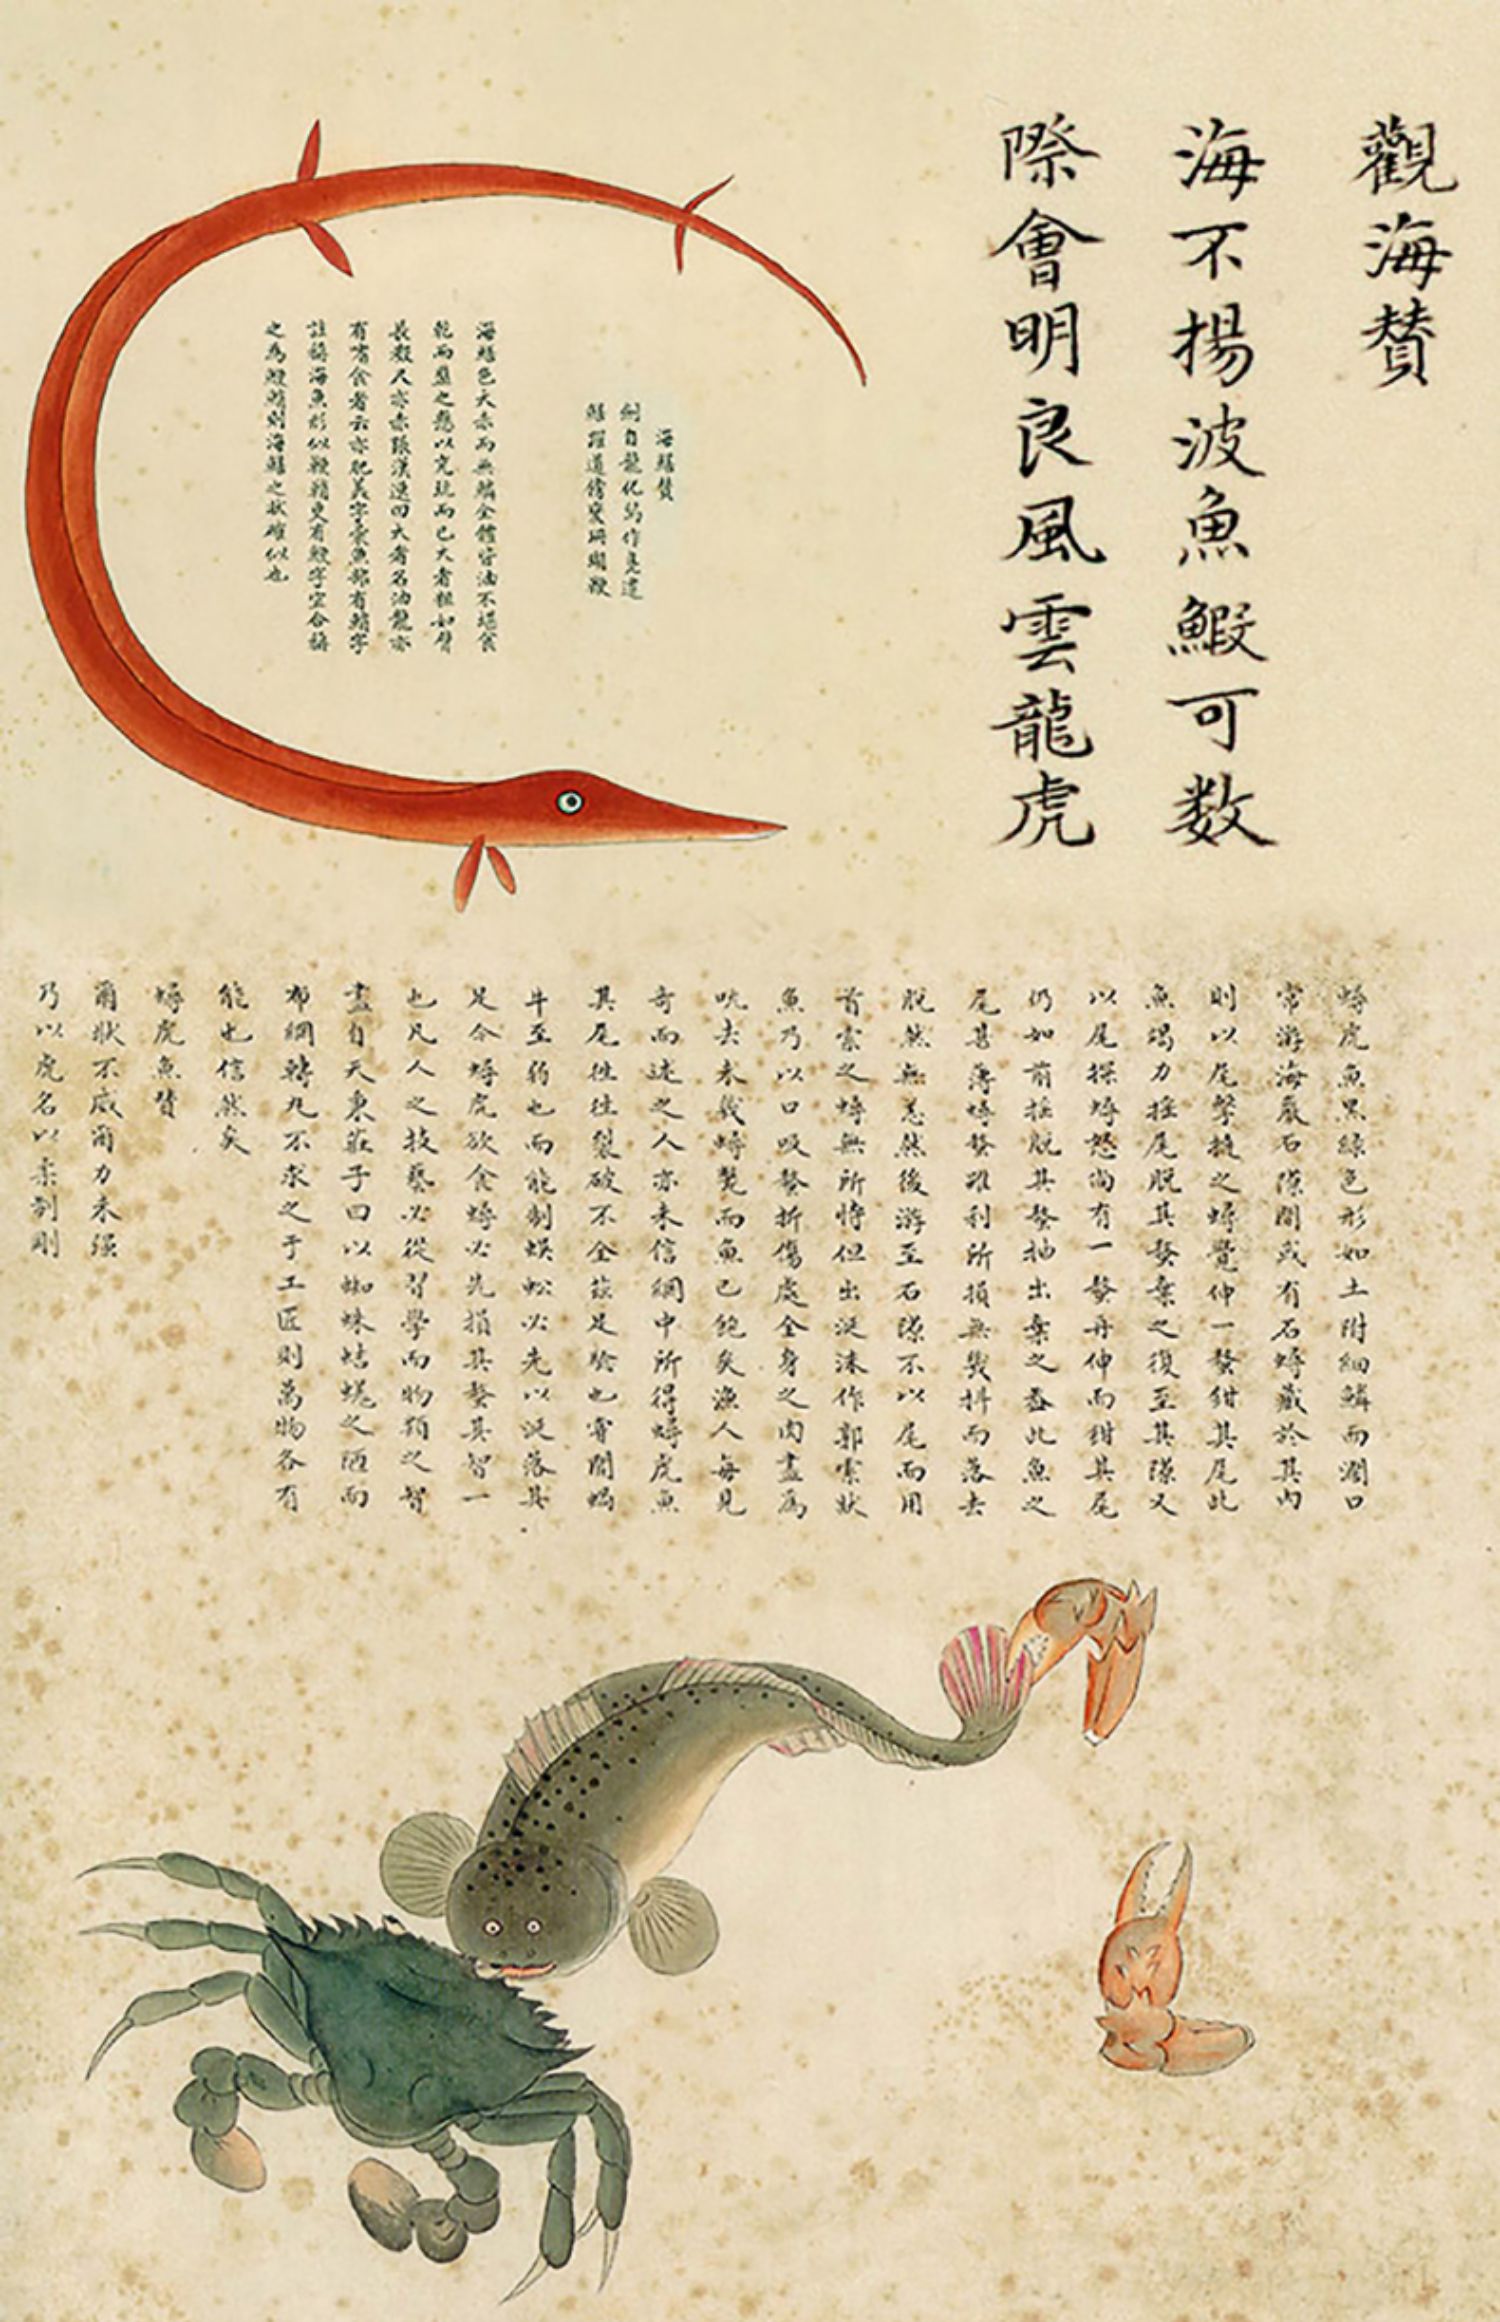 觀海賛
海不揚波魚鰕可数
際會明良風雲龍虎
海鱔賛
劍自龍化舄作鳧遷
鱔躍道傍變珊瑚鞭
海鱔色大赤而無鱗全體皆油不堪食
乾而盤之懸以充玩而已大者粗如臂
長數人亦赤張漢逸曰大者名油龍亦
有嗜食者云亦肥美字彙魚部有字
註稱海魚形似鞭鞘更有字宜合稱
之為則海鱔之狀確似也
蟳虎魚黑綠色形如土附細鱗而濶口
常游海巖石隙間或有石蟳藏於其內
則以尾擊撓之蟳覺伸一螯鉗其尾此
魚竭力揺尾脫其螯棄之復至其隙又
以尾探蟳怒尚有一螯再伸而鉗其尾
仍如前揺脫其螯抽出棄之盖此魚之
尾甚薄蟳螯雖利所損無幾抖而落去
脫然無恙然後游至石隙不以尾而用
首索之蟳無所恃但出涎沫作郭索狀
魚乃以口吸螯折傷處全身之肉盡為
吮去未幾蟳斃而魚已飽矣漁人每見
奇而述之人亦未信網中所得蟳虎魚
其尾徃徃裂破不全茲足驗也嘗聞蝸
牛至弱也而能制蜈蚣必先以涎落其
足今蟳虎欲食蟳必先損其螯其智一
也凡人之技藝必從習學而物類之智
盡自天秉莊子曰以蜘蛛蛣蜣之陋而
布網轉丸不求之于工匠則萬物各有
能也信然矣
蟳虎魚賛
爾狀不威爾力未强
乃以虎名以柔制剛